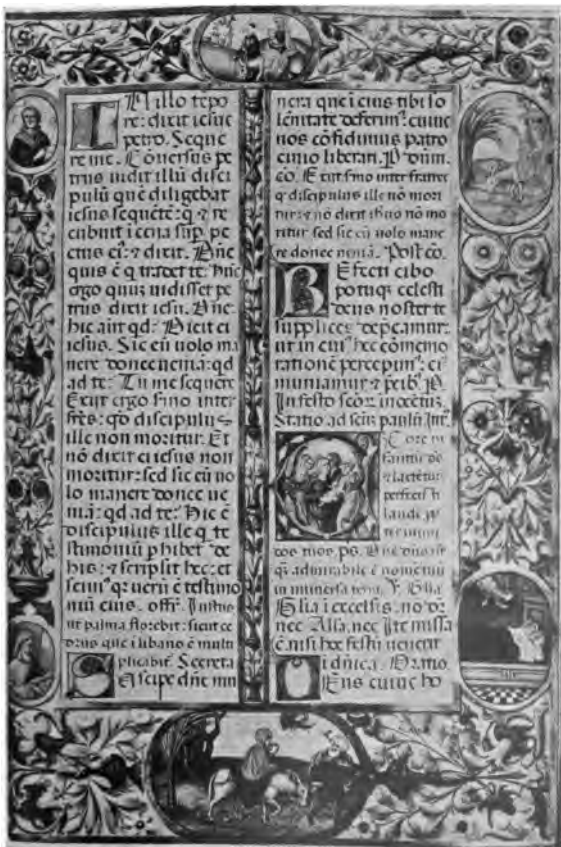 N illo tēpo
re: dixit iesus
petro. Seque
re me. Cōversus pe
trus uidit illū disci
pulū quē diligebat
iesus sequētē: q̄ ⁊ re
cubuit i cena sup̄ pe
ctus ei⁹: ⁊ dixit. Dn̄e
quis ē q̄ tradet te. hūc
ergo quuz uidisset pe
trus dixit iesu. Dn̄e
hic aūt qd. Dicit ei
iesus. Sic eū uolo ma
nere donec ueniā: qd
ad te: Tu me sequere
Exiit ergo sermo inter
frēs: qd discipulus
ille non moritur. Et
nō dixit ei iesus non
moritur: sed sic eū uo
lo manere donec ue
niā: qd ad te: Hic ē
discipulus ille q̄ te
stimoniū phibet de
his: ⁊ scripsit hec: et
scim⁹ qr uerū ē testimo
niū eius. offr̄. Iustus
ut palma florebit: sicut ce
drus que i libano ē multi
plicabit̄ Secreta
S uscipe dn̄e mu
nera que i eius tibi so
lēnitate deferim⁹: cuius
nos cōfidimus patro
cinio liberari. P. dūm.
co. Exiit sermo inter fratres
q̄ discipulus ille nō mori
tur: ⁊ nō dixit iesus nō mo
ritur sed sic eū uolo mane
re donec ueniā. Post cō.
R Efecti cibo
potuq̄ celesti
deus noster te
supplices dep̄camur:
ut in cui⁹ hec cōmemo
rationē percepim⁹: ei⁹
muniamur ⁊ p̄cib⁹. P.
In festo scōr inocētuz
Statio ad scūz paulū Intr̄.
E X ore in
fantiū de⁹
⁊ lactētiū
perfecisti
laudē p̄p
ter inimi
cos tuos. ps. Dn̄e dn̄s nr̄
q̄ admirabile ē nomē tuū
in uniuersa terra. V. Glīa
Glīa i excelsis. nō dr̄
nec Alīa. nec Ite missa
ē. nisi hoc festū uenerit
i dn̄ica. Oratio.
D Eus cuius ho